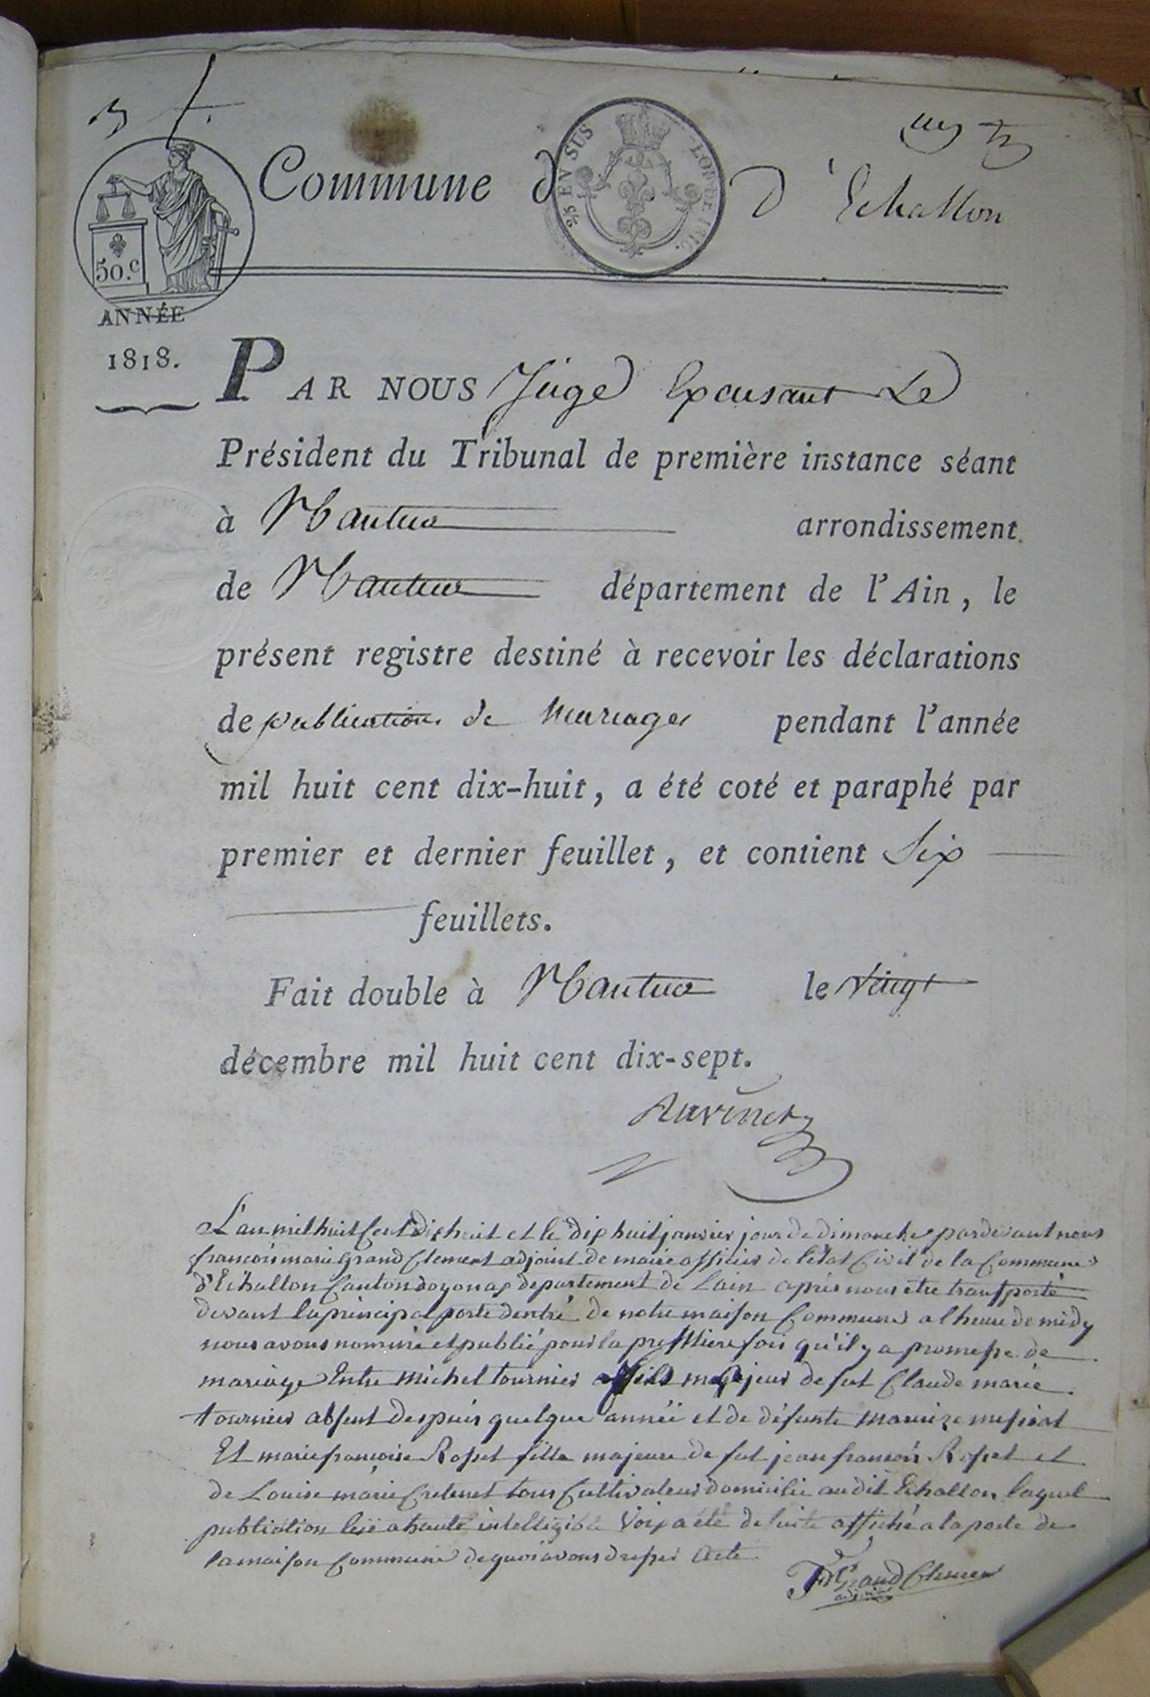 Commune d
D'Echallon
25 EN SUS
LOI DE 1816.
50.c
ANNÉE
1818.
PAR NOUS Juge Excusant Le
Président du Tribunal de première instance séant
à Nantua arrondissement
de Nantua département de l'Ain, le
présent registre destiné à recevoir les déclarations
de publications de Mariages pendant l'année
mil huit cent dix-huit, a été coté et paraphé par
premier et dernier feuillet, et contient Six
feuillets.
Fait double à Nantua le vingt
décembre mil huit cent dix-sept.
L'an mil huit Cent dix huit et le dix huit janvier jour de dimanche pardevant nous
francois marie Grand Clement adjoint de maire officier de l'état Civil de la Commune
d'Echallon Canton doyonax departement de Lain après nous être transporté
devant la principal porte dentré de notre maison Commune a lheure de midy
nous avons nommé et publié pour la premiere fois qu'il y a promesse de
mariage Entre michel tournier fils majeur de fut Claude marie
tournier absent despuis quelque année et de défunte
Et marie francoise Rosset fille majeure de fut jean francois Rosset et
de Louise marie tous Cultivateurs domicilié audit Echallon laquel
publication leüe a haute intelligible Voix a été de suite affiché a la porte de
la maison Commune de quoi avons dressé acte
Grand Clement